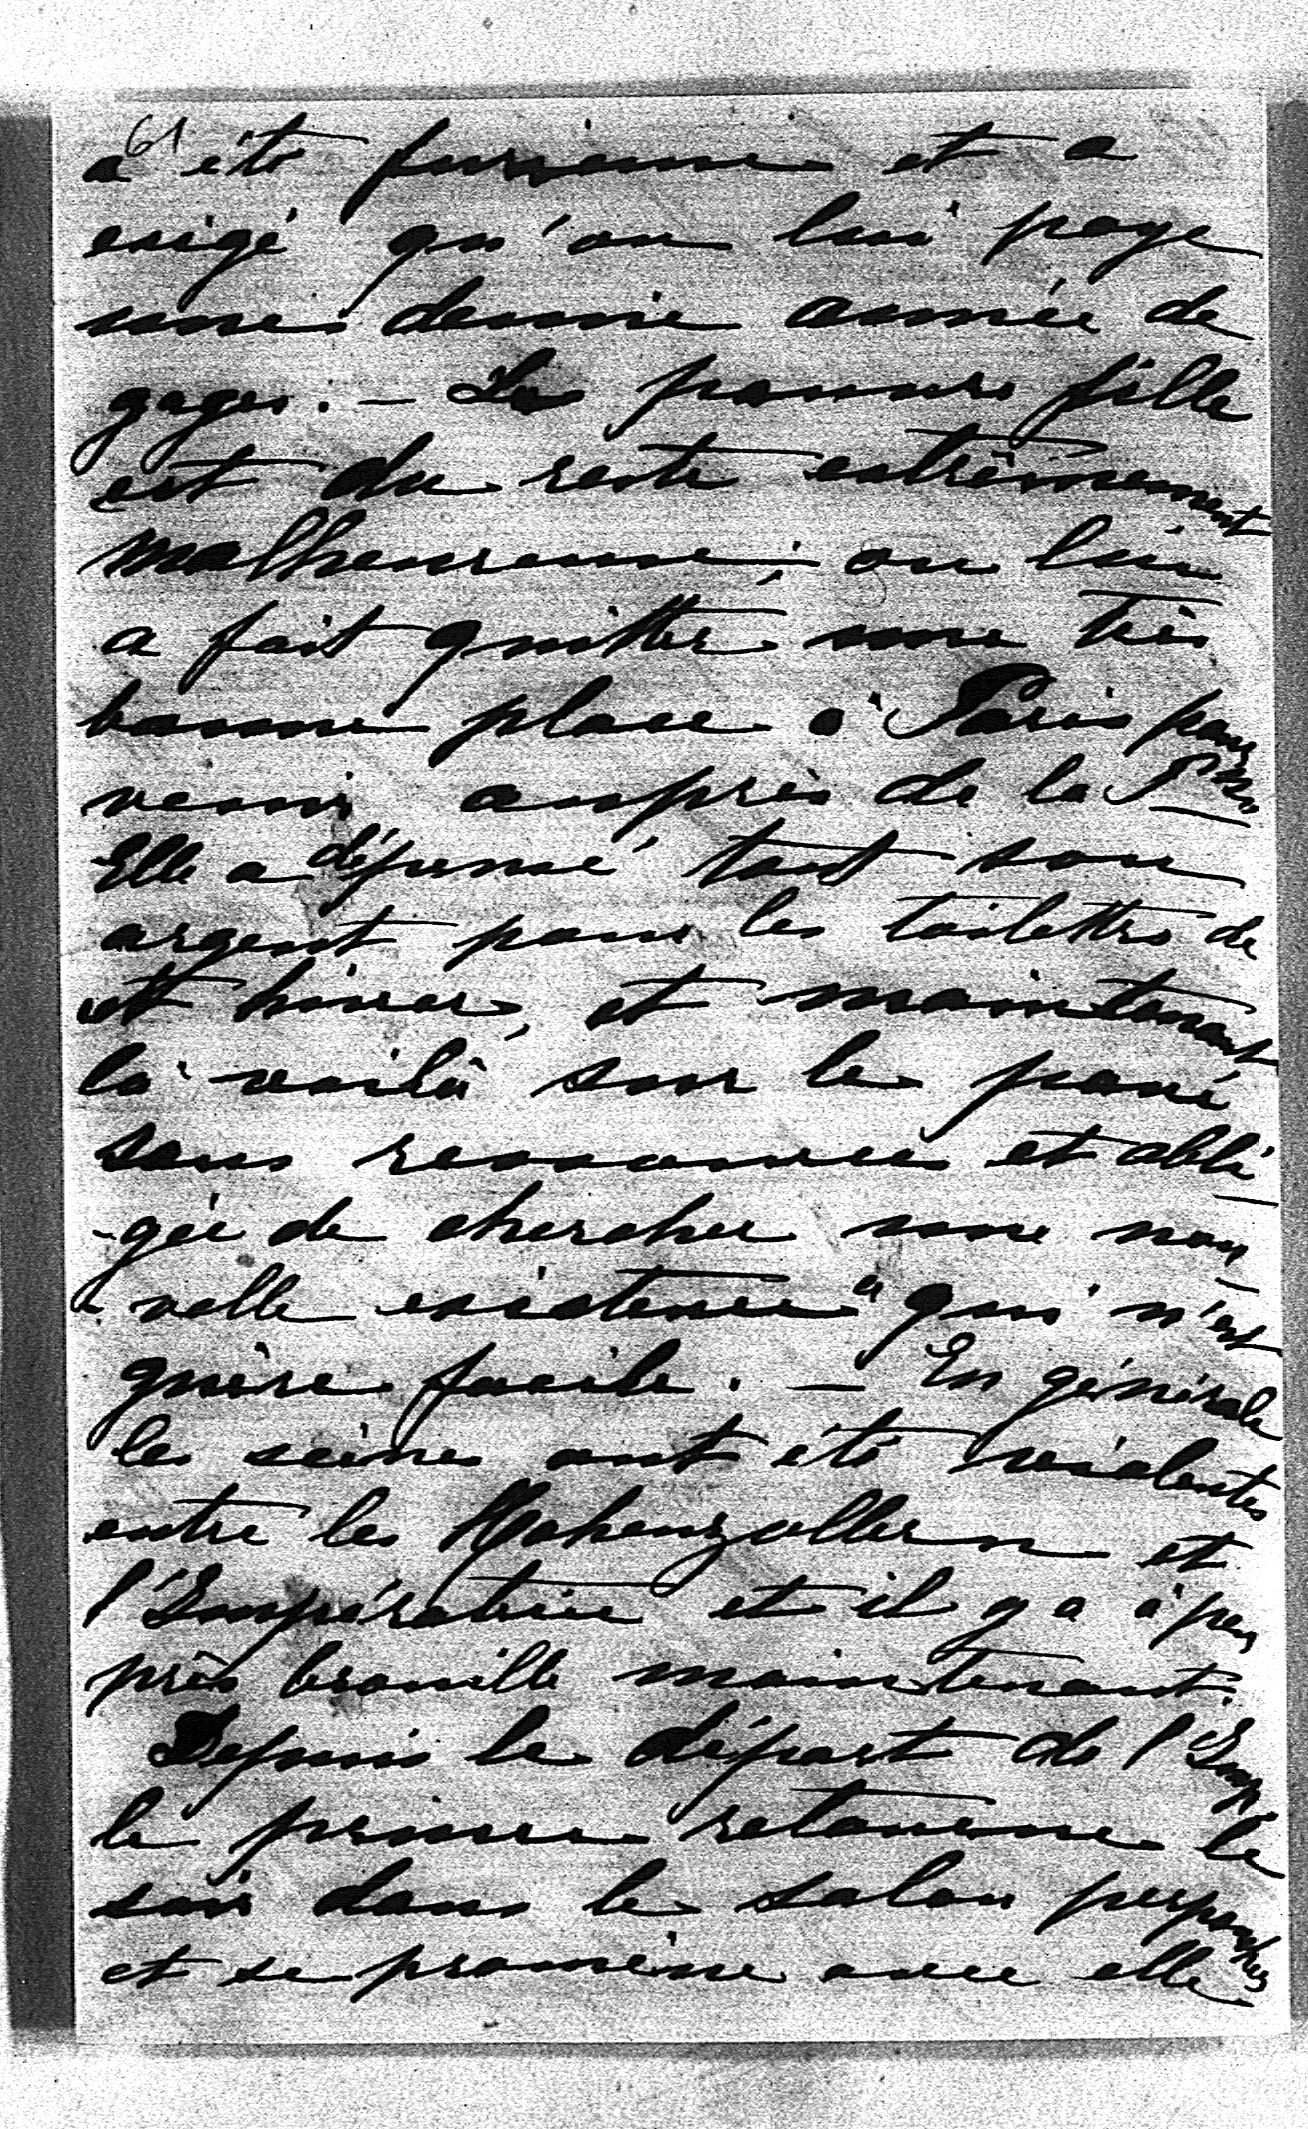 61
a été furieuse et a
exigé qu'on lui paye
une demie année de
gages. — La pauvre fille
est du reste extrêmement
malheureuse; on lui
a fait quitter une très
bonne place à Paris pour
venir auprès de la Psse
Elle a dépensé tout son
argent pour les toilettes de
cet hiver, et maintenant
la voilà sur le pavé
sans ressources et obli-
-gée de chercher une nou-
-velle existence qui n'est
guère facile. — En générale
les scènes ont été violentes
entre les Hohenzollern et
l'Impératrice et il y a à peu
près brouille maintenant.
Depuis le départ de l'Imp.
le prince retourne le
soir dans le salon
et se promène avec elle